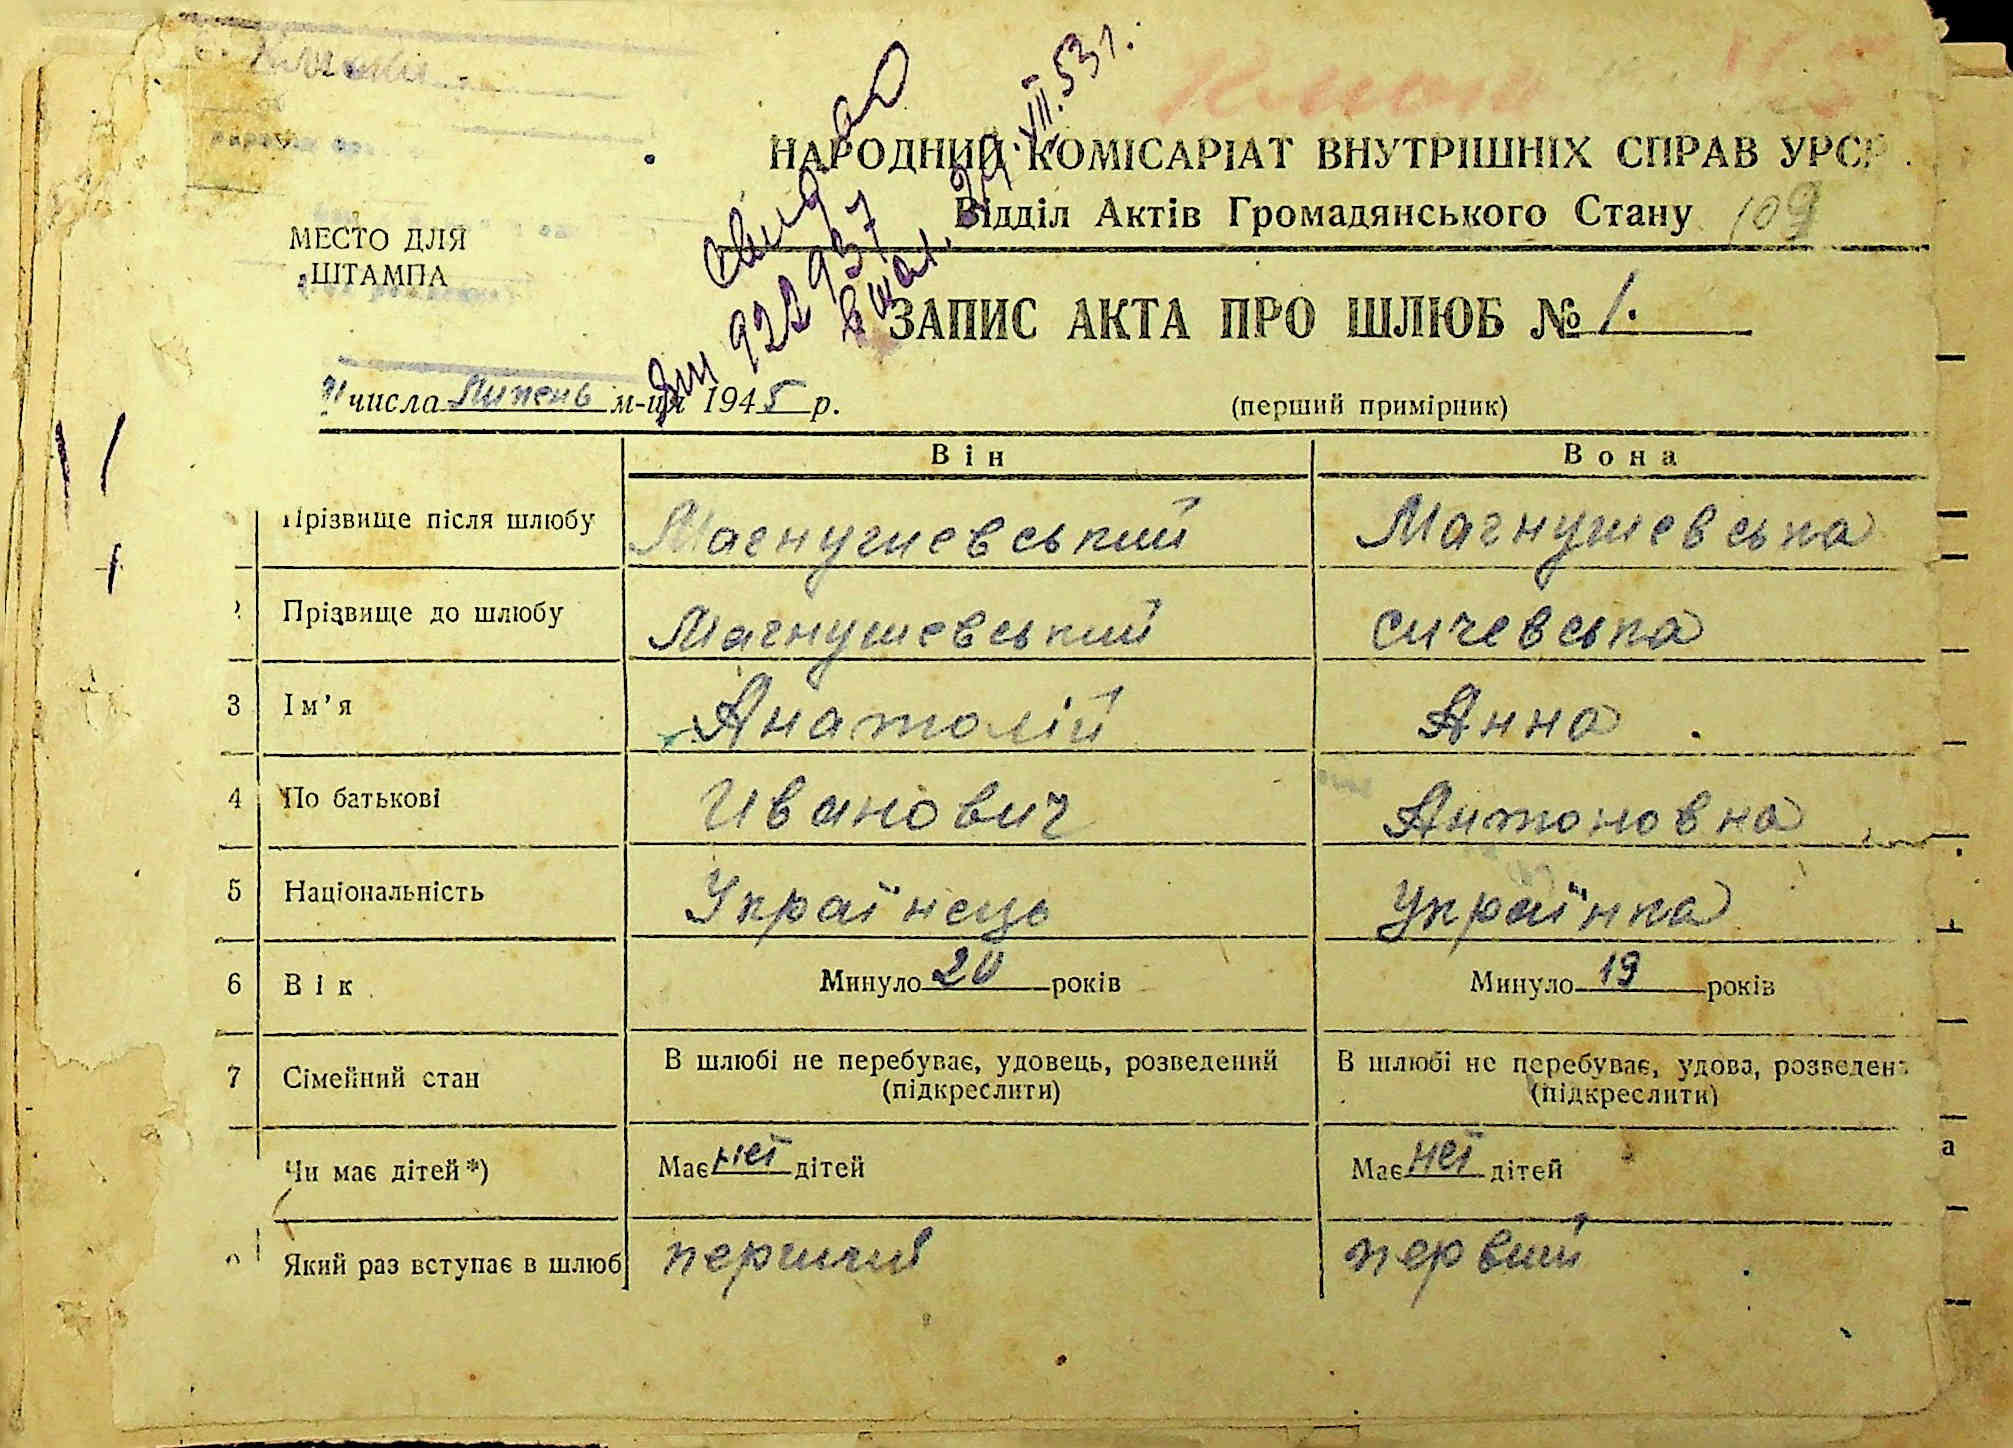 НАРОДНИЙ КОМІСАРІАТ ВНУТРІШНІХ СПРАВ УРСР
Відділ Актів Громадянського Стану 109
МЕСТО ДЛЯ
ШТАМПА
922937
VII.53 г.
ЗАПИС АКТА ПРО ШЛЮБ № 1.
числа Липень м-ця 1945 р.
(перший примірник)
Він Вона
Прізвище після шлюбу Магнушевський Магнушевська
Прізвище до шлюбу Магнушевський Сичевська
3 Ім'я Анатолій Анна
4 По батькові Иванович Антоновна
5 Національність Українець Українка
6 Вік Минуло 20 років Минуло 19 років
7 Сімейний стан В шлюбі не перебуває, удовець, розведений В шлюбі не перебуває, удова, розведен
(підкреслити) (підкреслити)
Чи має дітей*) Має неї дітей Має неї дітей
Який раз вступає в шлюб перший первий